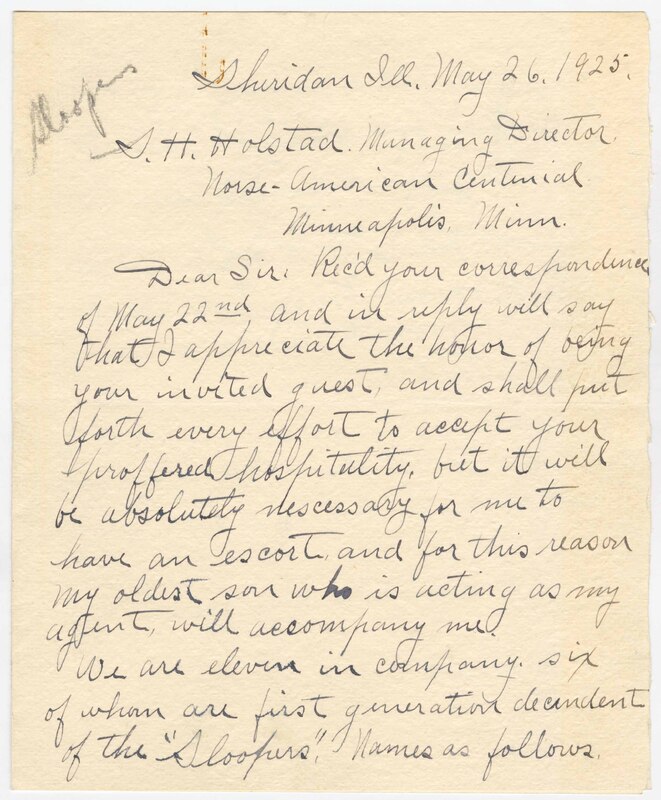 Sloopers
Sheridan Ill. May 26, 1925.
S. H. Holstad. Managing Director.
Norse-American Centinial
Minneapolis, Minn.
Dear Sir: Rec'd your correspondence
of May 22nd and in reply will say
that I appreciate the honor of being
your invited guest, and shall put
forth every effort to accept your
proffered hospitulity, but it will
be absolutely nescessary for me to
have an escort, and for this reason
my oldest son who is acting as my
agent, will accompany me.
We are eleven in company. six
of whom are first generation decendent
of the "Sloopers". Names as follows.